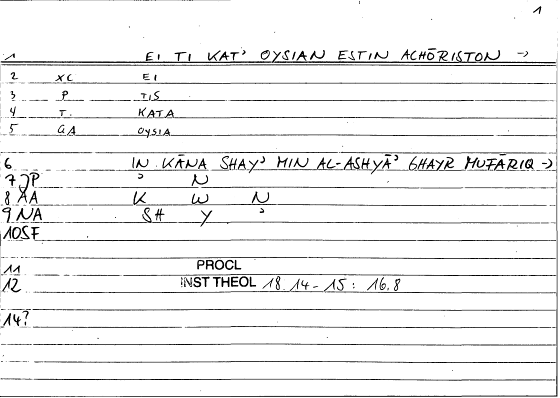 1
1 EI TI KAT' OYSIAN ESTIN ACHŌRISTON →
2 XC EI
3 P TIS
4 T. KATA
5 GA OYSIA
6 IN KĀNA SHAY' MIN AL-ASHYĀ' GHAYR MUFĀRIQ →
7 JP ' N
8 AA K W N
9 NA SH Y '
10 SF
11 PROCL
12 INST THEOL 18.14-15: 16.8
14?